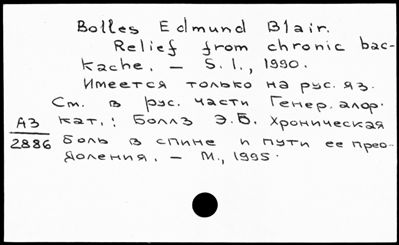 Bolles Edmund Blair.
Relief from chronic bac-
kache. – S. l., 1990.
Имеется только на рус. яз.
См. в рус. части Генер. алф.
кат.: Боллз Э.Б. Хроническая
боль в спине и пути ее прео-
доления. – М., 1995.
А3
2886